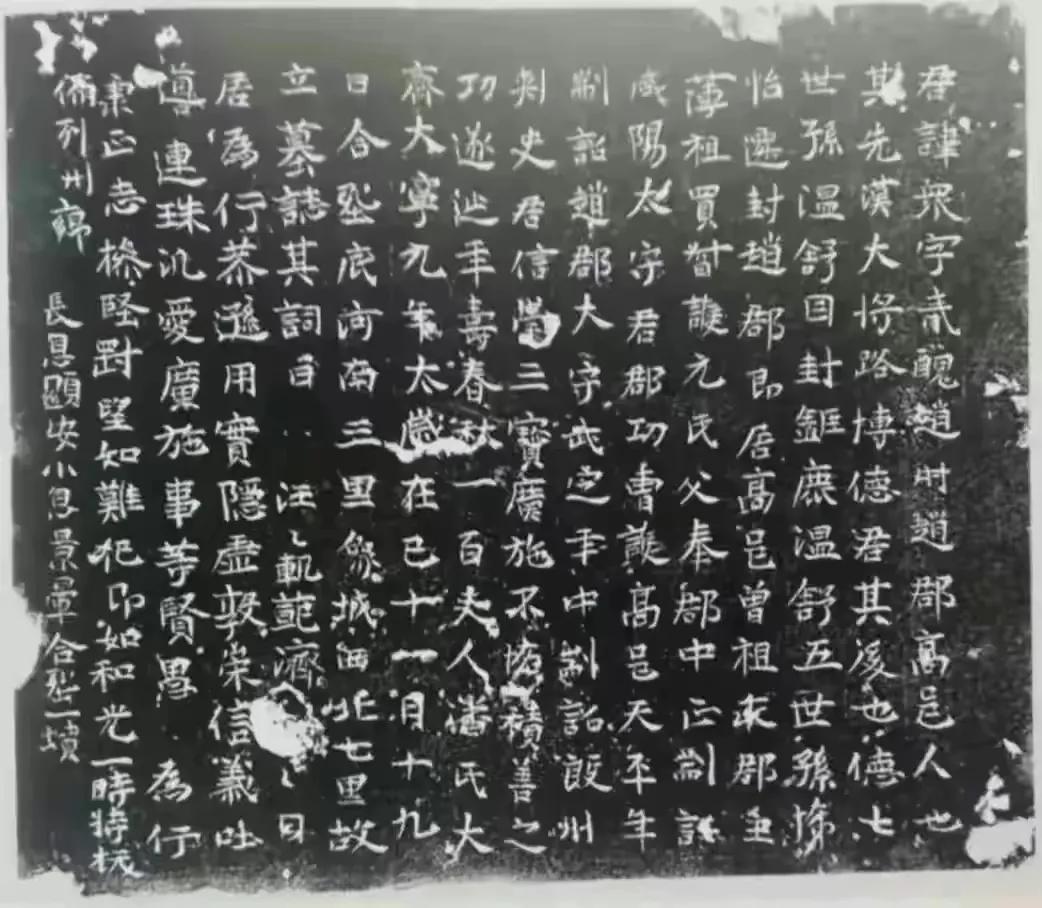 君諱衆字醜趙趙郡高邑人也
其先漢大將路博德君其後也德七
世孫溫舒因封鉅鹿溫舒五世孫悌
怡遷封趙郡即居高邑曾祖求郡主
薄祖買督護元氏父奉郡中正制詔
咸陽太守君郡功曹護高邑天平年
制詔趙郡大守武定年中制詔殷州
刺史君信崇三寶廣施不惓積善之
功遂延年壽春秋一百夫人潘氏大
齊大寧九年太歲在巳十一月十九
日合塟底河南三里象城西北七里故
立墓誌其詞曰 汪〻軌範濟〻目
居為行恭遜用實隱虛敦崇信義吐
連珠汎愛廣施事等賢愚 為行
秉正志堅對望如難犯即如和光一時特拔
備列州端 長息頤安小息景暈合塟一墳